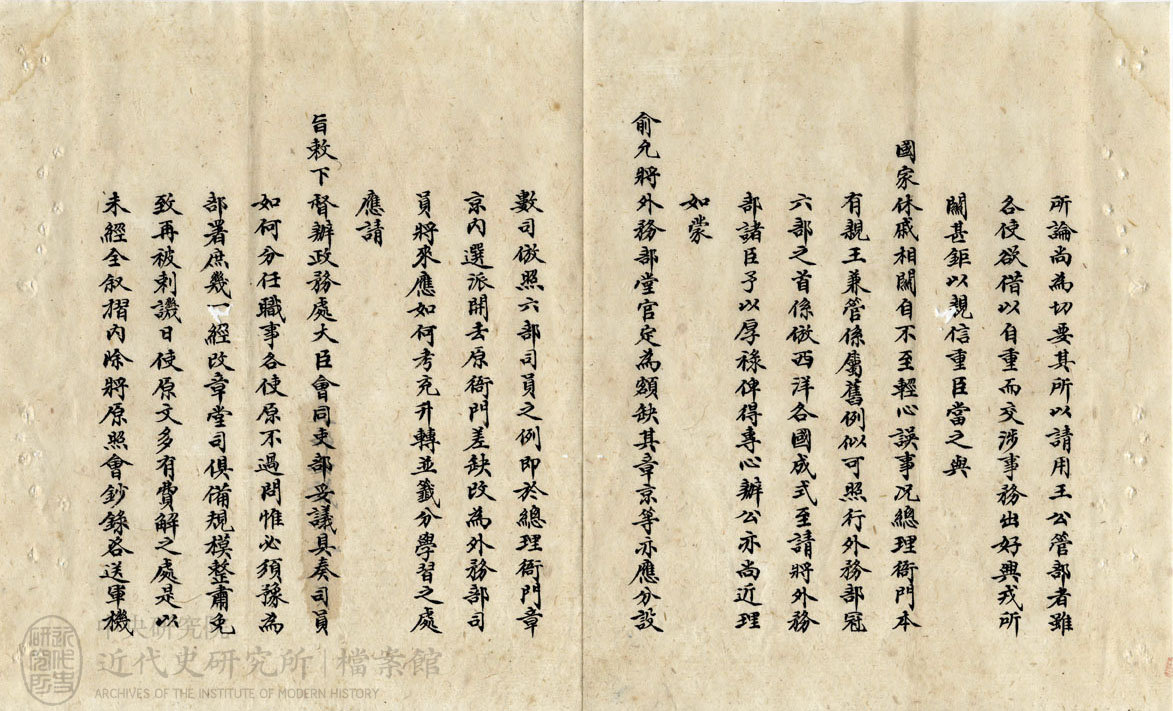 所論尚為切要其所以請用王公管部者雖
各使欲借以自重而交涉事務出好興戎所
關甚鉅以親信重臣當之與
國家休戚相關自不至輕心誤事况總理衙門本
有親王兼管係屬舊例似可照行外務部冠
六部之首係倣西洋各國成式至請將外務
部諸臣予以厚祿俾得專心辦公亦尚近理
如蒙
俞允將外務部堂官定為額缺其章京等亦應分設
數司倣照六部司員之例即於總理衙門章
京內選派開去原衙門差缺改為外務部司
員將來應如何考充升轉並籤分學習之處
應請
旨敕下督辦政務處大臣會同吏部妥議具奏司員
如何分任職事各使原不過問惟必須豫為
部署庶幾一經改章堂司俱備規模整肅免
致再被刺譏日使原文多有費解之處是以
未經全叙摺內除將原照會鈔錄咨送軍機
中央研究院
近代史研究所 檔案館
ARCHIVES OF THE INSTITUTE OF MODERN HISTORY